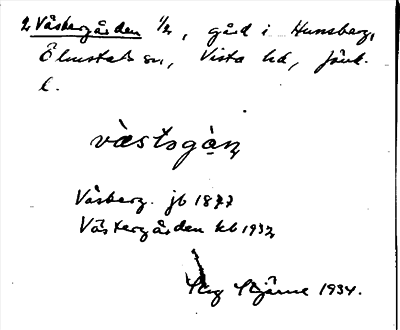 2 Västergården 1/2, gård i Hunsberg,
Ölmstads sn, Vista hd, Jönk.
l.
västsgàɳ
Väsberg. jb 1877
Västergården kb 1932
Stig Stjärne 1934.